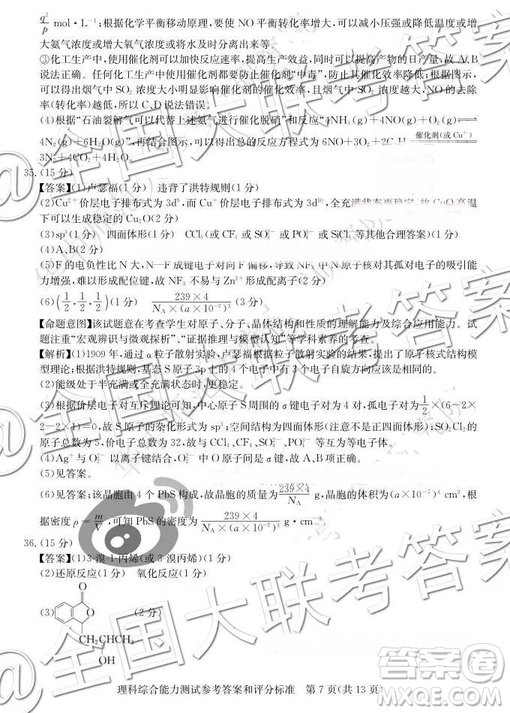 q²/p mol·L⁻¹;根据化学平衡移动原理,要使 NO 平衡转化率增大,可以减小压强或降低温度或增
大氨气浓度或增大氧气浓度或将水及时分离出来等。
③化工生产中,使用催化剂可以加快反应速率,提高生产效益,同时提高产物的日产量,故 A、B
说法正确。任何化工生产中使用催化剂都要防止催化剂“中毒”,防止其催化效率降低;根据图示,
可以得出烟气 SO₂ 浓度大小明显影响催化剂的催化效率,且烟气中 SO₂ 浓度越大,NO 的去除
率(转化率)越低,所以 C、D 说法错误。
(4)根据“石油裂解气可以代替上述氨气进行催化还原”及 4NH₃(g)+4NO(g)+O₂(g)
4N₂(g)+6H₂O(g)可知,可以得出总的反应方程式为 6NO+3O₂+2C₃H₆ 催化剂(或 Cu⁺)
3N₂+6CO₂+6H₂O。
35.(15 分)
【答案】(1)卢瑟福(1 分) 违背了洪特规则(1 分)
(2)Cu²⁺价层电子排布式为 3d⁹,而 Cu⁺价层电子排布式为 3d¹⁰,全充满状态更稳定,故 CuO 高温
下可以生成稳定的 Cu₂O(2 分)
(3)sp³(1 分) 四面体形(1 分) CCl₄(或 CF₄ 或 SO₄²⁻ 或 SiO₄⁴⁻ 等其他合理答案)(1 分)
(4)A、B(2 分)
(5)F 的电负性比 N 大,N—F 成键电子对向 F 偏移,导致 NF₃ 中 N 原子核对其孤对电子的吸引能
力增强,难以形成配位键,故 NF₃ 不易与 Zn²⁺形成配离子(2 分)
(6)(1/2,1/2,1/2)(1 分) 239×4/(N_A×(a×10⁻⁷)³)(3 分)
【命题意图】该试题意在考查学生对原子、分子、晶体结构和性质的理解能力及综合应用能力。试
题注重“宏观辨识与微观探析”、“证据推理与模型认知”等学科素养的考查。
【解析】(1)1909 年,通过 α 粒子散射实验,卢瑟福根据粒子散射实验现象,提出了原子核式结构模
型理论;根据洪特规则,基态 S 原子 3p 上的 4 个电子中有 3 个电子自旋方向应该是相同的。
(2)能级处于半充满或全充满状态时,更稳定。
(3)根据价层电子互斥理论可知,中心原子 S 周围的 σ 键电子对为 4 对,孤电子对为1/2×(6-2×
2-2×1)=0,故采取 sp³ 杂化,空间结构为四面体形(注意不是正四面体形);SO₂Cl₂ 分子的
原子总数为 5,价电子总数为 32,故可以是 CCl₄、CF₄、SO₄²⁻、SiO₄⁴⁻ 等。
(4)Ag⁺与 O₂²⁻ 以离子键结合,O₂²⁻ 中 O—O 是 σ 键。故 A、B 项正确。
(5)见答案。
(6)见答案;该晶胞由 4 个 PbS 构成,故晶胞的质量为 239×4/N_A g,晶胞体积为(a×10⁻⁷)³ cm³,根
据密度 ρ=m/V,可知 PbS 的密度为 239×4/(N_A×(a×10⁻⁷)³) g·cm⁻³。
36.(15 分)
【答案】(1)3-溴-1-丙烯(或 3-溴丙烯)(1 分)
(2)还原反应(1 分) 氧化反应(1 分)
(3) O O (2 分)
CH₂CHCH₃
OH
理科综合能力测试参考答案和评分标准 第 7 页(共 13 页)
@全国大联考答案